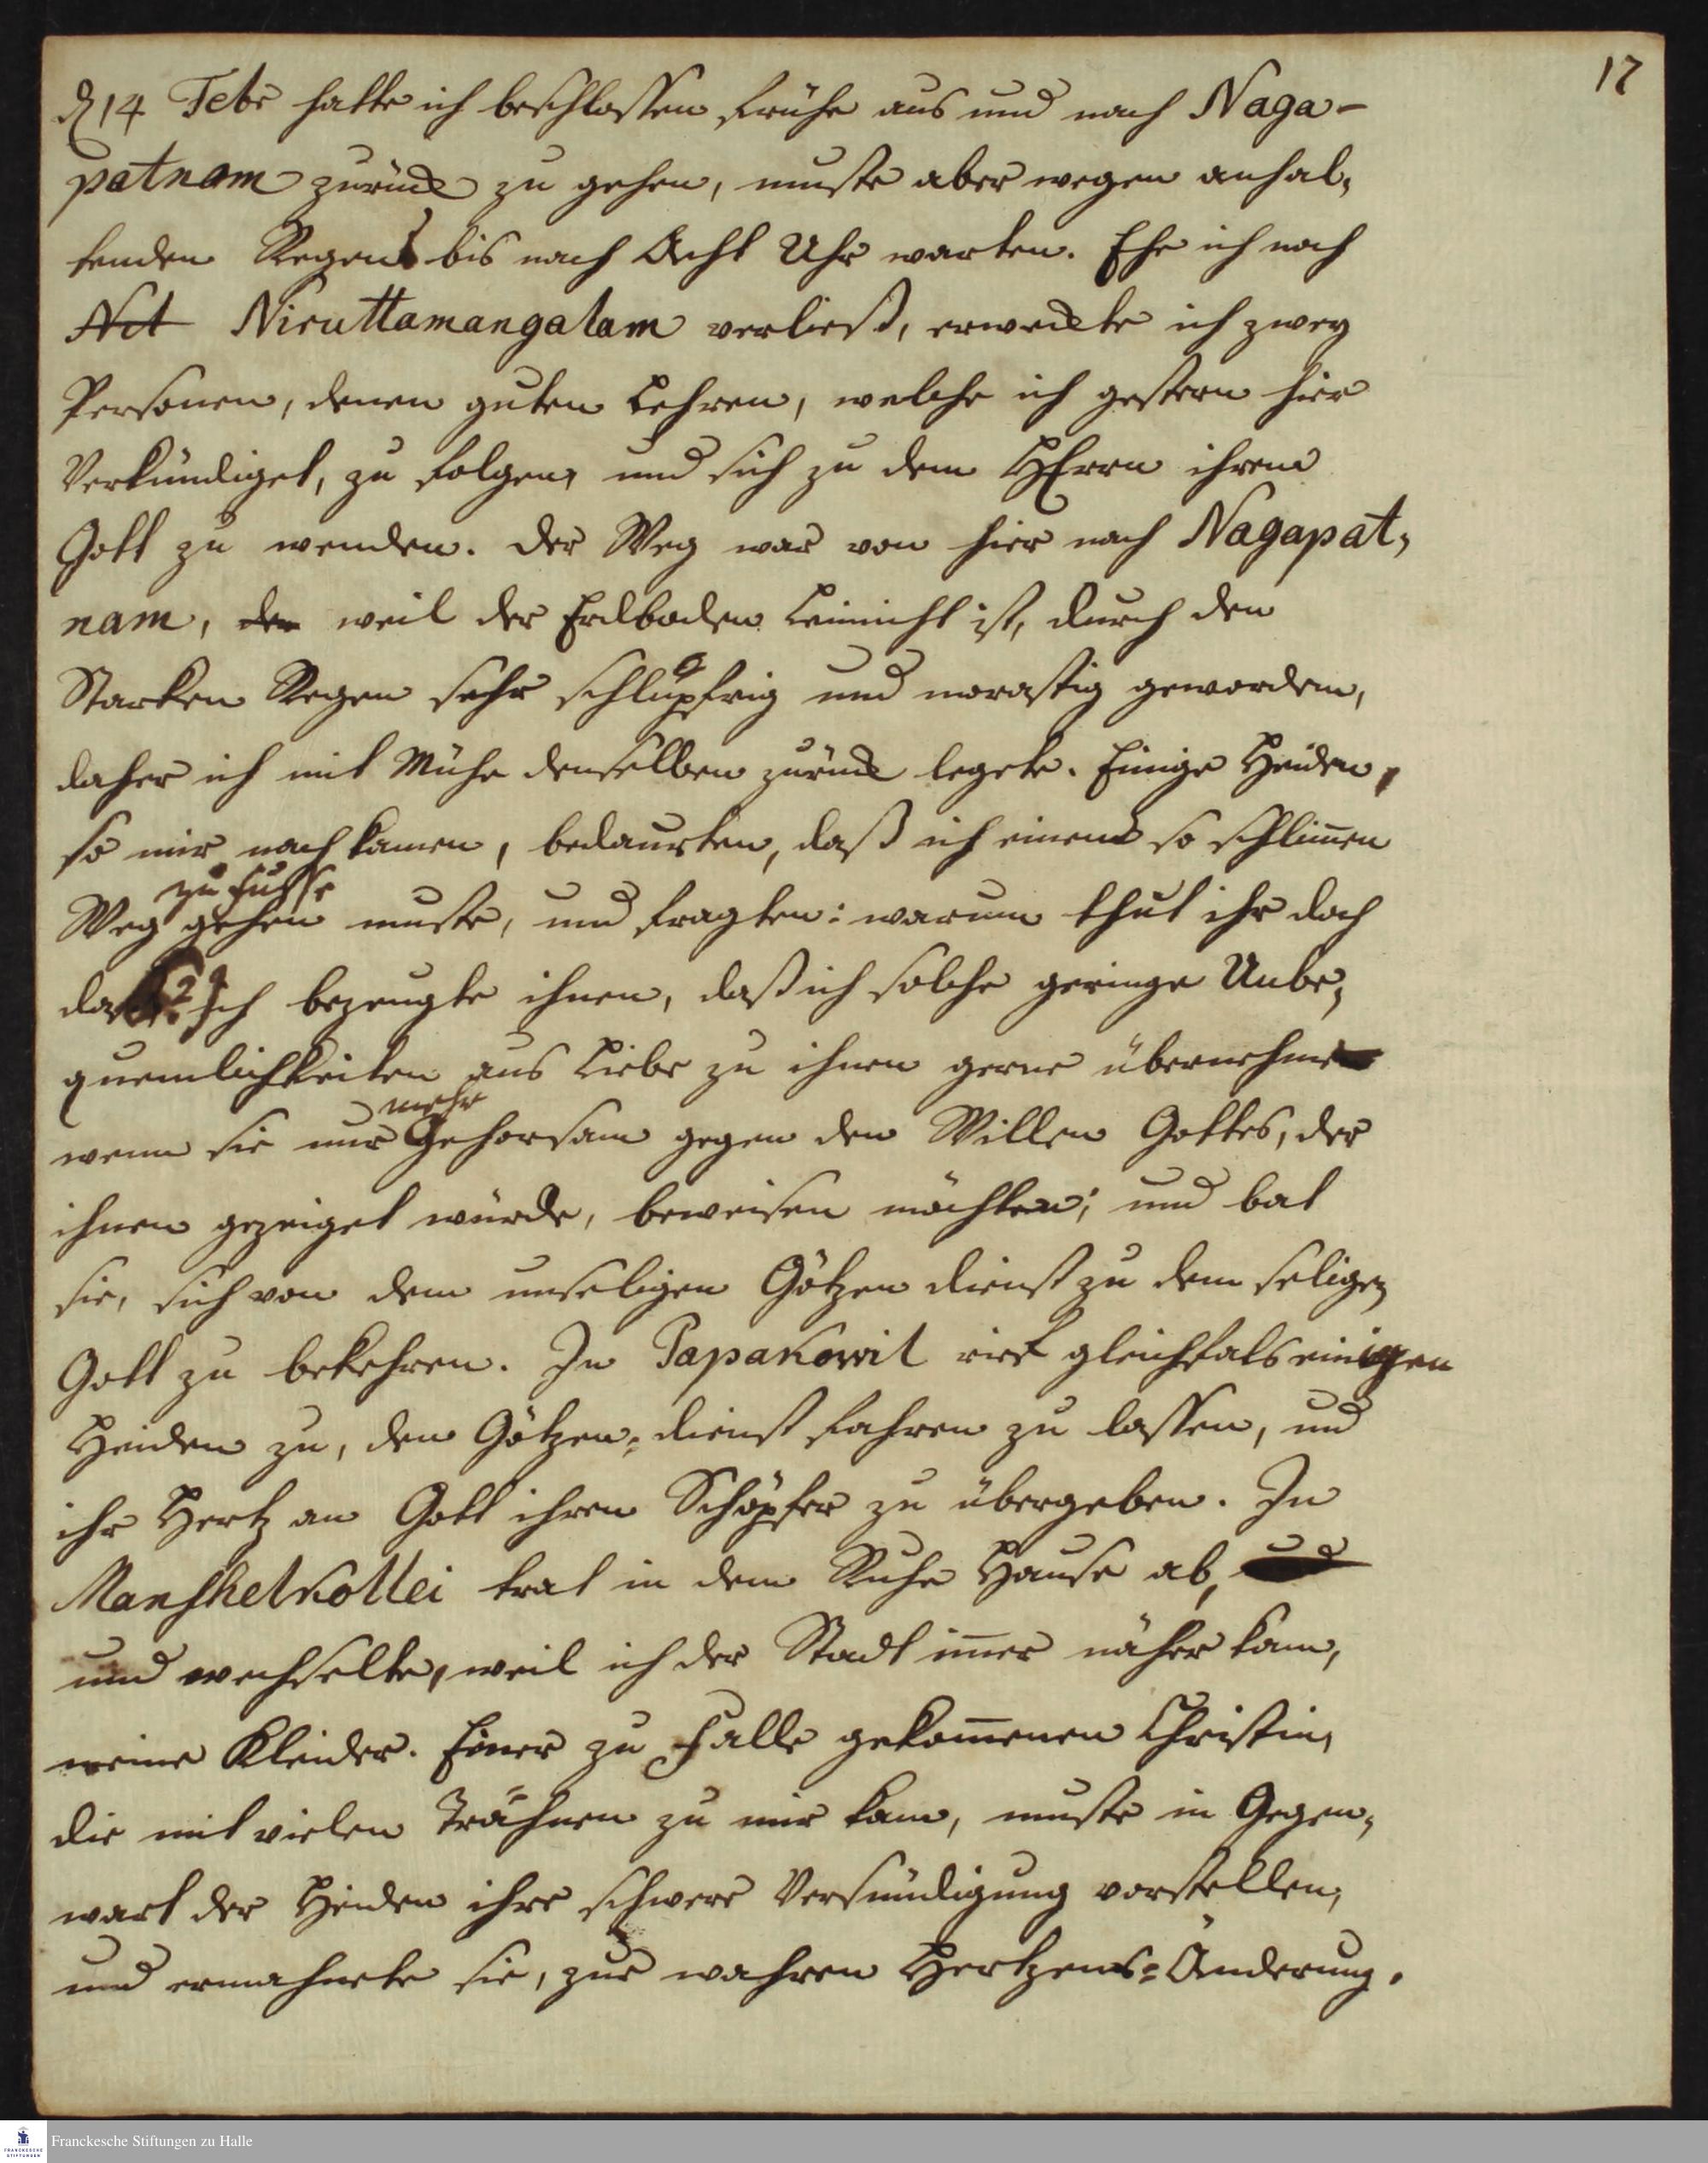 17
d 14 Febr hatte ich beschlossen frühe aus und nach Naga-
patnam zurück zu gehen, muste aber wegen anhal,
tenden Regens bis nach Acht Uhr warten. Ehe ich noch
Nit Niruttamangalam verließ, erweckte ich zwey
Personen, denen guten Lehren, welche ich gestern hier
Verkündiget, zu folgen, und sich zu dem HErrn ihrem
Gott zu wenden. der Weg war von hier nach Nagapat,
nam, der weil der Erdboden Leimicht ist, durch den
Starken Regen sehr schlüpfrig und morastig geworden,
daher ich mit Mühe denselben zurück legete. Einige Heiden,
so mir nach kamen, bedaurten, daß ich einen so schlim̄en
zu fusse
Weg gehen muste, und fragten: warum thut ihr doch
das? Ich bezeugte ihnen, daß ich solche geringe Unbe,
quemlichkeiten aus Liebe zu ihnen gerne übernehme
mehr
wenn sie nur Gehorsam gegen den Willen Gottes, der
ihnen gezeiget würde, beweisen möchten; und bat
sie, sich von dem unseligen Götzen dienst zu dem seligen
Gott zu bekehren. In Papakowil rief gleichfals einigen
Heiden zu, den Götzen-dienst fahren zu lassen, und
ihr Hertz an Gott ihren Schöpfer zu übergeben. In
Manshelkollei trat in dem Ruhe Hause ab,
und wechselte, weil ich der Stadt im̄er näher kam,
meine Kleider. Einer zu Falle gekom̄enen Christin,
die mit vielen Trähnen zu mir kam, muste in Gegen,
wart der Heiden ihre schwere Versündigung vorstellen,
und ermahnete sie, zur wahren Hertzens=Änderung.
FRANCKESCHE STIFTUNGEN
Franckesche Stiftungen zu Halle